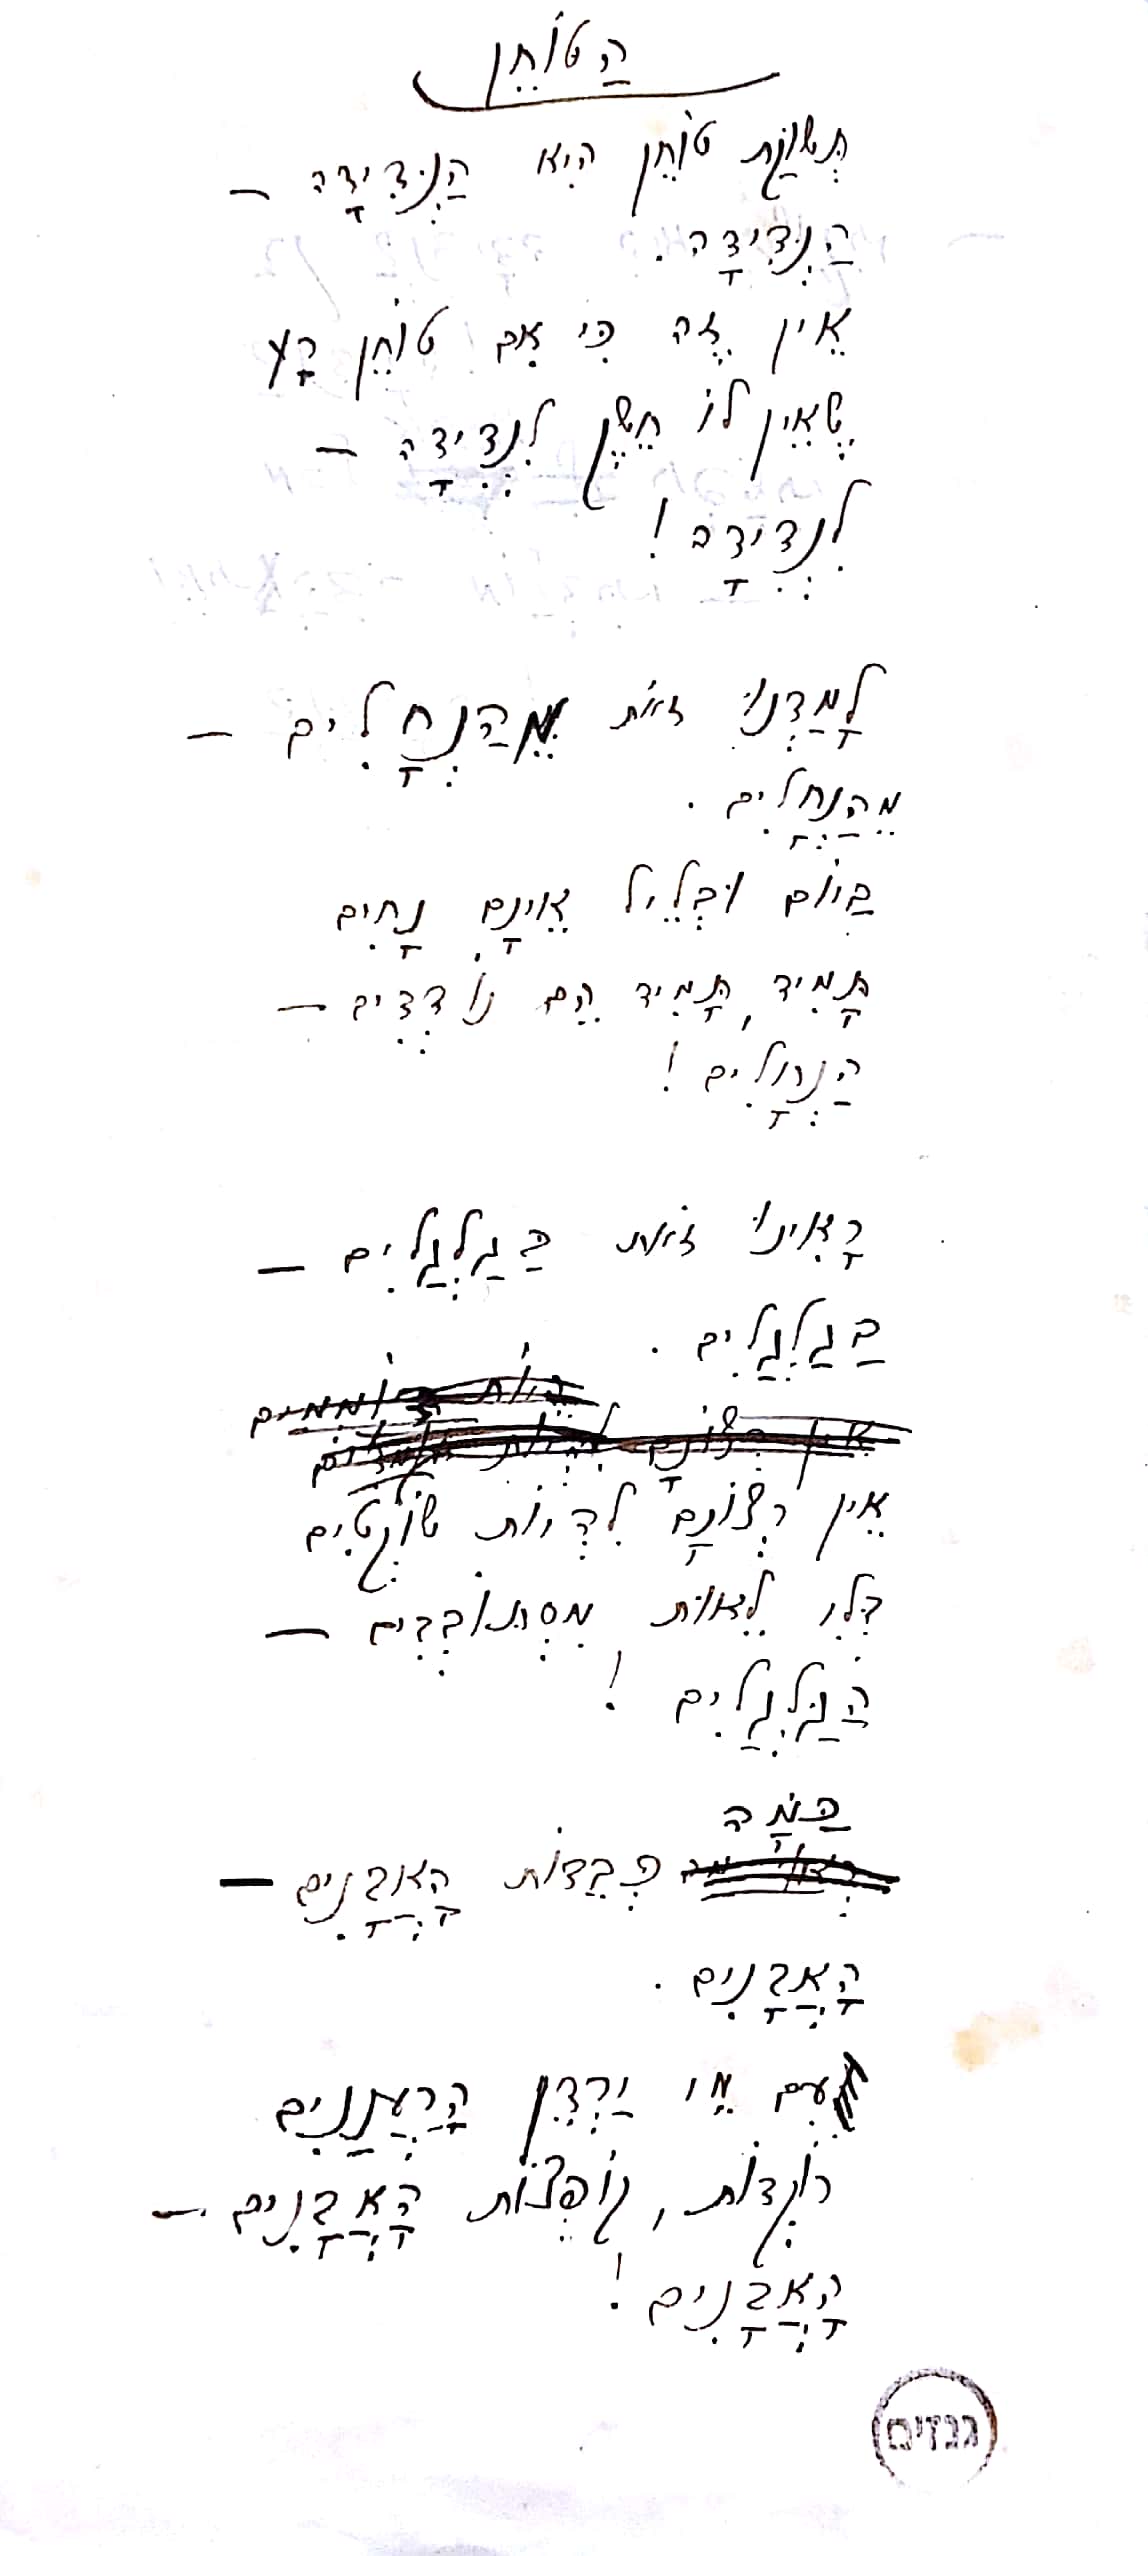 הַטוֹחֵן
תְּשׁוּקַת טוֹחֵן הִיא הַנְּדִידָה –
הַנְּדִידָה.
אֵין זֶה כִּי אִם טוֹחֵן רָע
שֶׁאֵין לוֹ חֵשֶׁק לִנְדִידָה –
לִנְדִידָה!
לָמַדְנוּ זֹאת מֵהַנְּחָלִים –
מֵהַנְּחָלִים.
בַּיּוֹם וּבְלֵיל אֵינָם נָחִים
תָּמִיד, תָּמִיד הֵם נוֹדְדִים –
הַנְּחָלִים!
רָאִינוּ זֹאת בַּגַּלְגַּלִּים –
בַּגַּלְגַּלִּים.
אֵין רְצוֹנָם לִהְיוֹת שׁוֹקְטִים
בְּלִי לֵאוּת מִסְתּוֹבְבִים –
הַגַּלְגַּלִּים!
כַּמָּה
כְּבֵדוֹת הָאֲבָנִים –
הָאֲבָנִים.
עִם מֵי יַרְדֵּן הָרַעֲנַנִּים
רוֹקְדוֹת, קוֹפְצוֹת הָאֲבָנִים –
הָאֲבָנִים!
גנזים